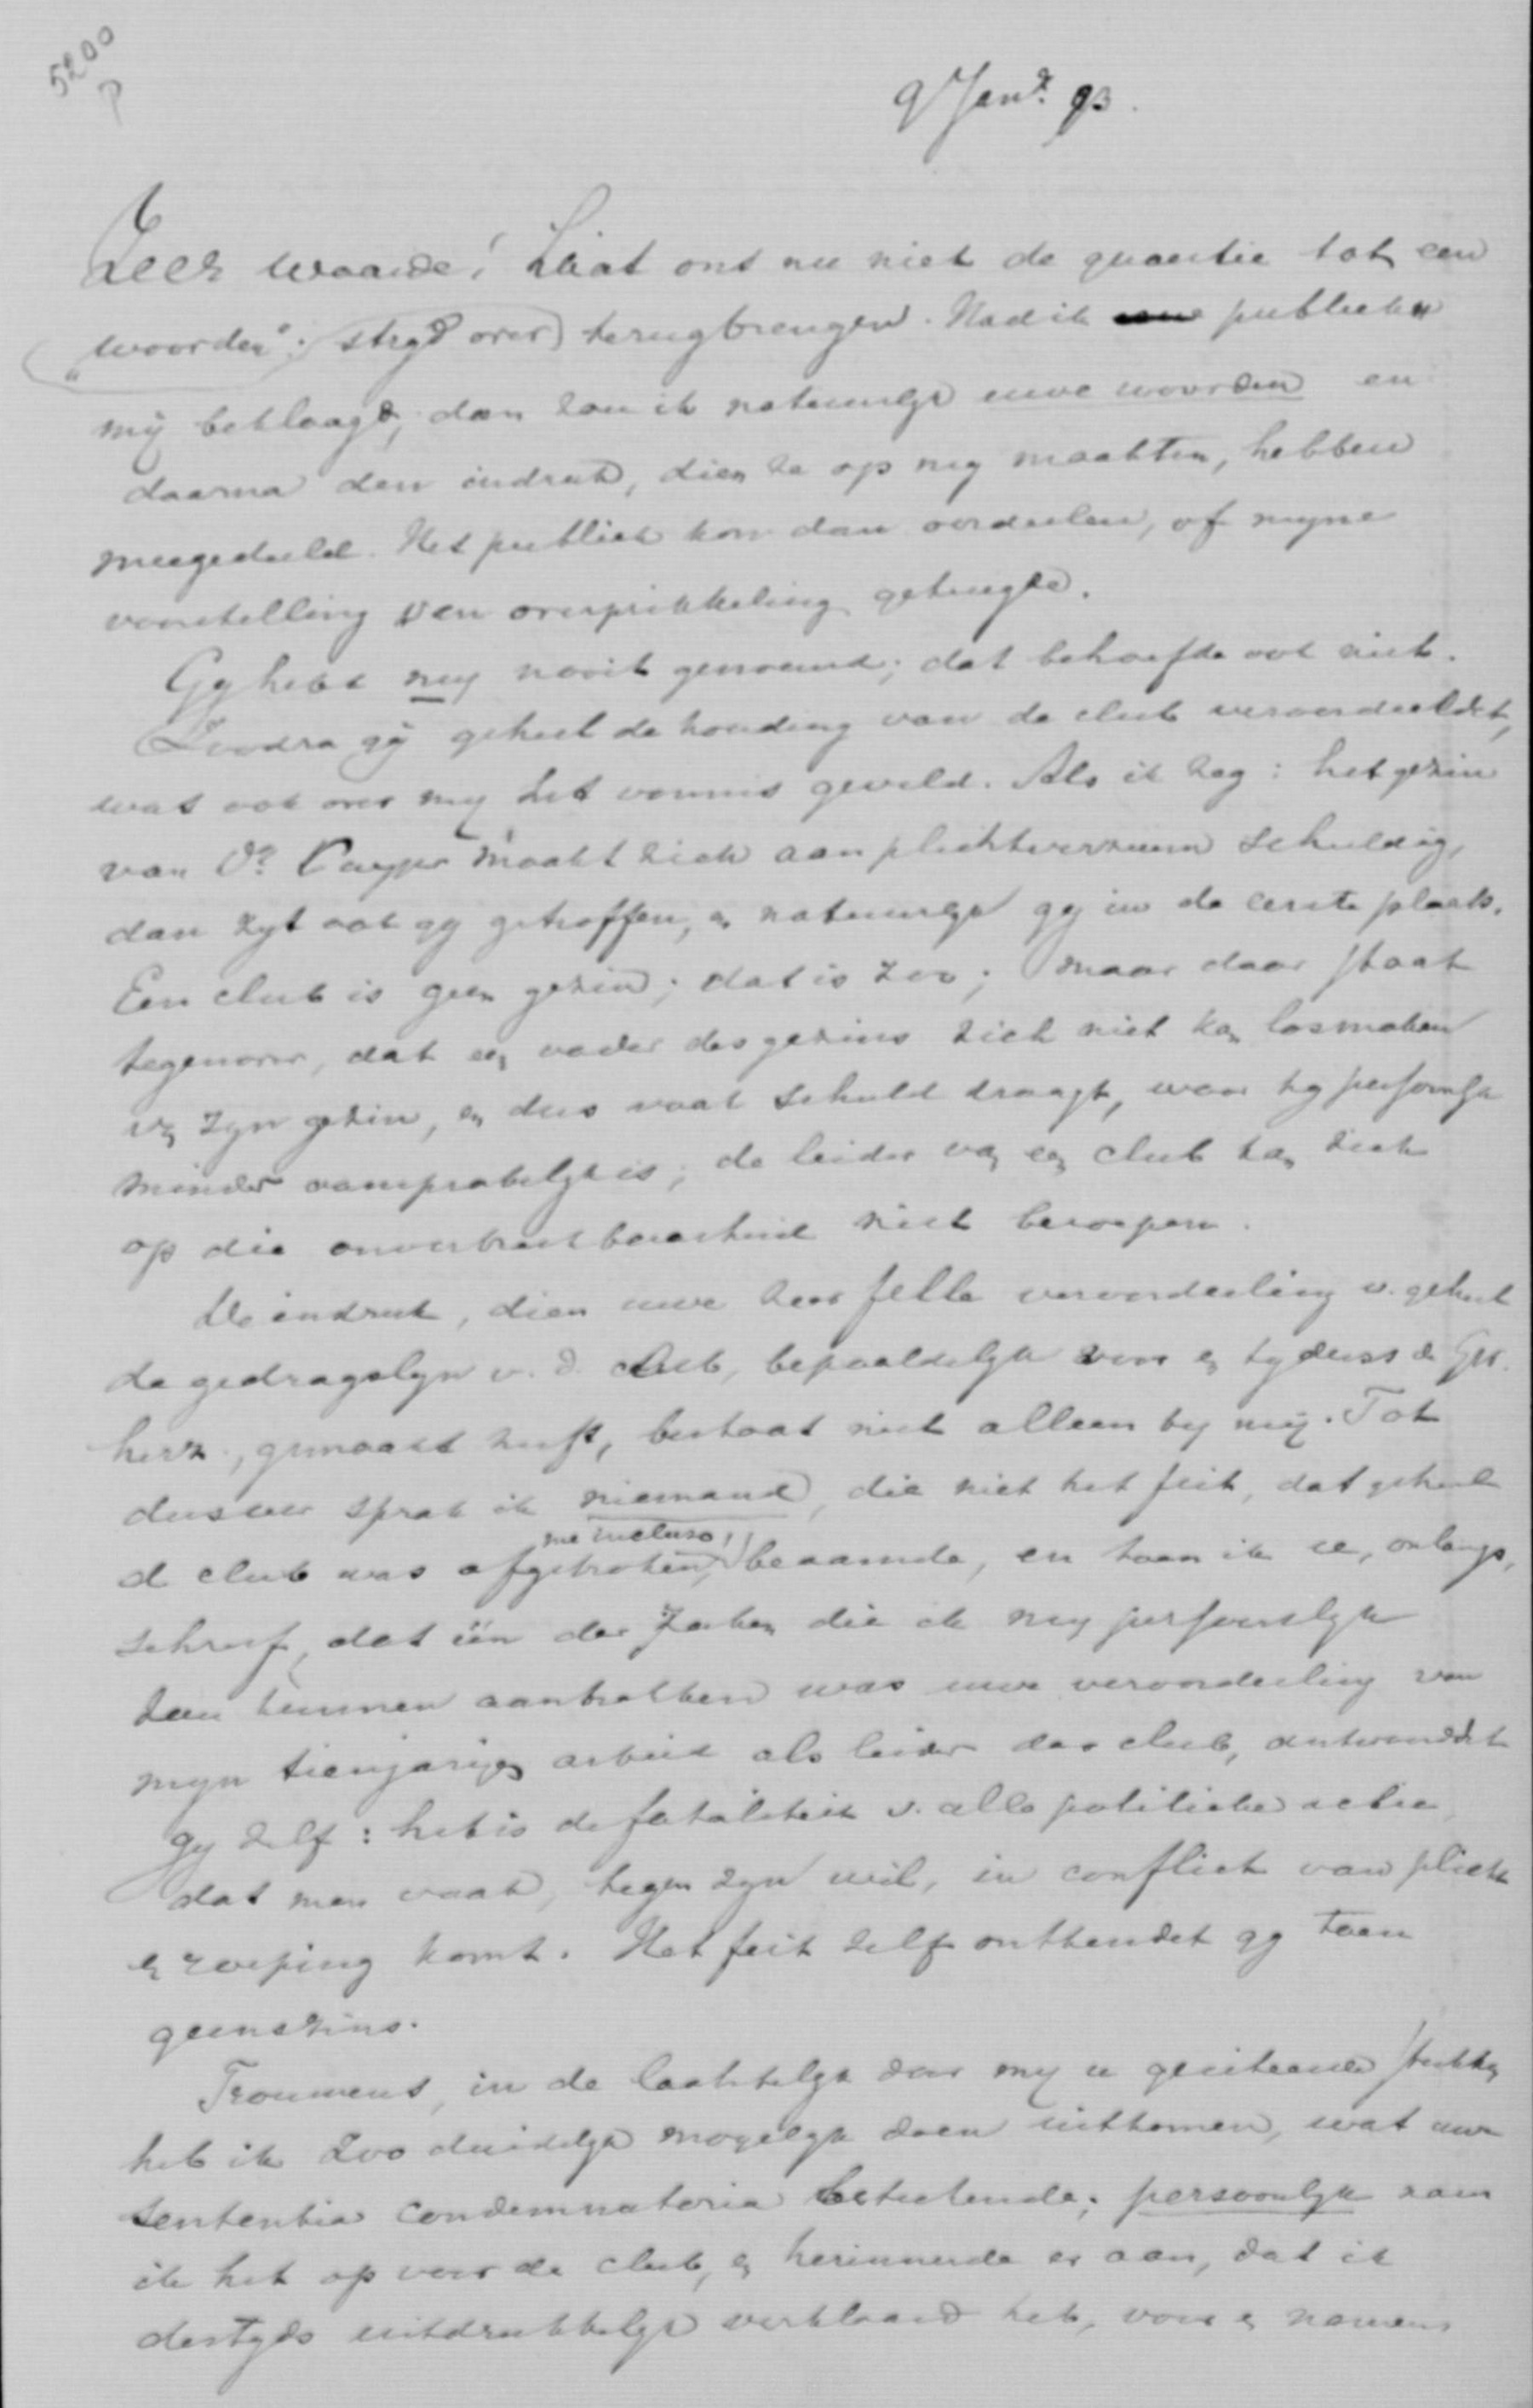 5200
P
9 Jan.r 93.
Zeer waarde! Laat ons nu niet de quaestie tot een
"woorden": strijd over terugbrengen. Had ik publiek
mij beklaagd, dan zou ik natuurlijk uwe woorden en
daarna den indruk, dien ze op mij maakten, hebben
meegedeeld. Het publiek kon dan oordeelen, of mijne
voorstelling van overprikkeling getuigde.
Gij hebt mij nooit genoemd; dat behoefde ook niet.
Zoodra gij geheel de houding van de club veroordeeldet,
was ook over mij het vonnis geveld. Als ik zeg: het gezin
van Dr. Cuyper maakt zich aan plichtverzuim schuldig,
dan zijt ook gij getroffen, en natuurlijk gij in de eerste plaats.
Een club is geen gezin; dat is zoo; maar daar staat
tegenover, dat een vader des gezins zich niet kan losmaken
van zijn gezin, en dus vaak schuld draagt, waar hij persoonlijk
minder aansprakelijk is; de leider van een club kan zich
op die onverbreekbaarheid niet beroepen.
De indruk, dien uwe zeer felle veroordeeling v. geheel
de gedragslijn v. d. club, bepaaldelijk voor en tijdens de Gr.
herz., gemaakt heeft, bestaat niet alleen bij mij. Tot
dusver sprak ik niemand, die niet het feit, dat geheel
me incluso,
d club was afgebroken, beaamde, en toen ik u, onlangs,
schreef, dat één der zaken die ik mij persoonlijk
zou kunnen aantrekken was uwe veroordeeling van
mijn tienjarigen arbeid als leider der club, antwoorddet
gij zelf: het is de fataliteit v. alle politieke actie,
dat men vaak, tegen zijn wil, in conflict van plicht
en roeping komt. Het feit zelf ontkendet gij toen
geenszins.
Trouwens, in de laatstelijk door mij u gezonden stukken
heb ik zoo duidelijk mogelijk doen uitkomen, wat uwe
sententia condemnatoria beteekende; persoonlijk nam
ik het op voor de club, en herinnerde er aan, dat ik
destijds uitdrukkelijk verklaard heb, voor en namens